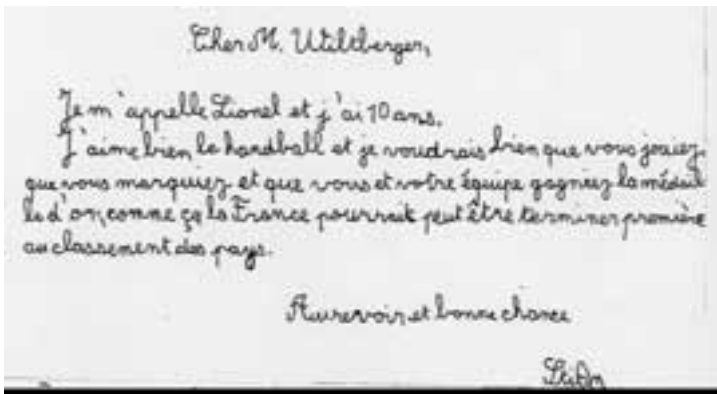 Cher M. Wiltberger,
Je m'appelle Lionel et j'ai 10 ans.
J'aime bien le handball et je voudrais bien que vous jouiez,
que vous marquiez et que vous et votre équipe gagniez la médail
le d'or, comme ça la France pourrait peut être terminer première
au classement des pays.
Aurevoir et bonne chance